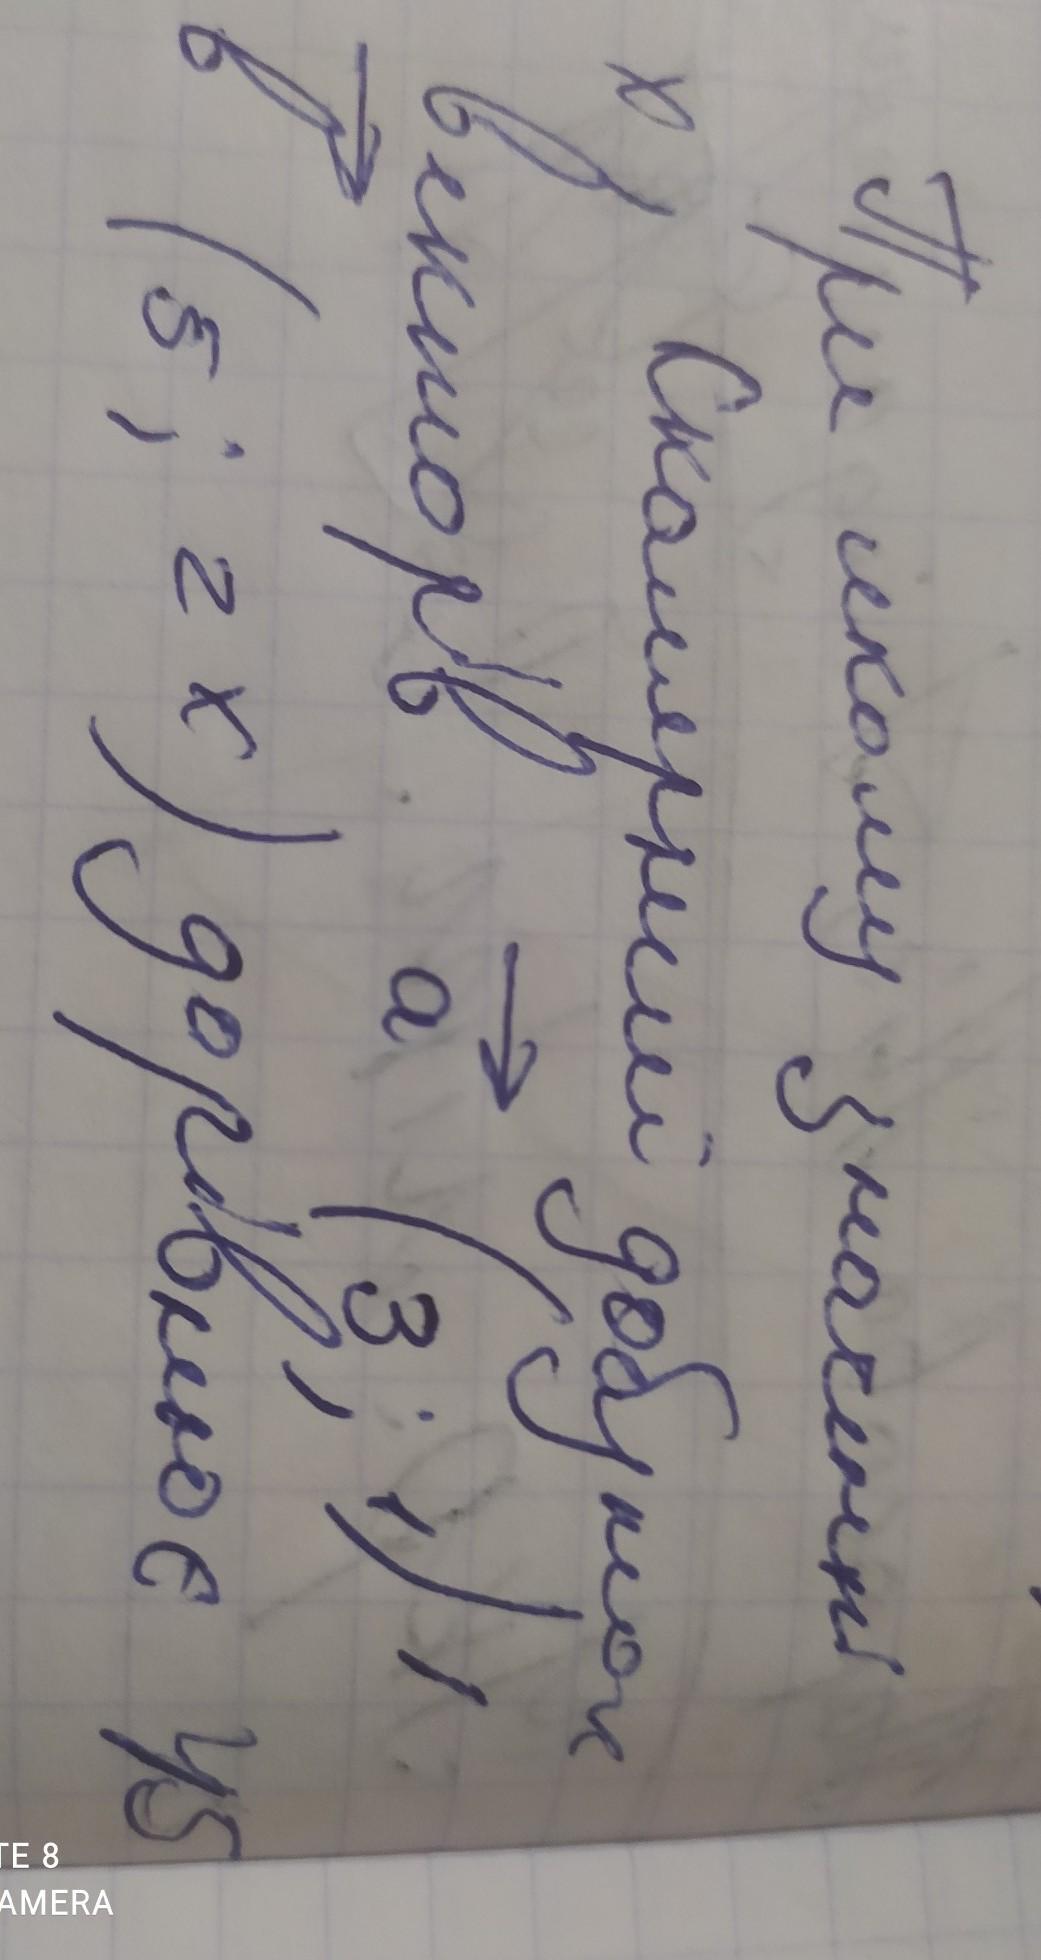 При якому значенні
х скалярний добуток
векторів a (3; 1) і
в (5; 2х) дорівнює 45
TE 8
AMERA